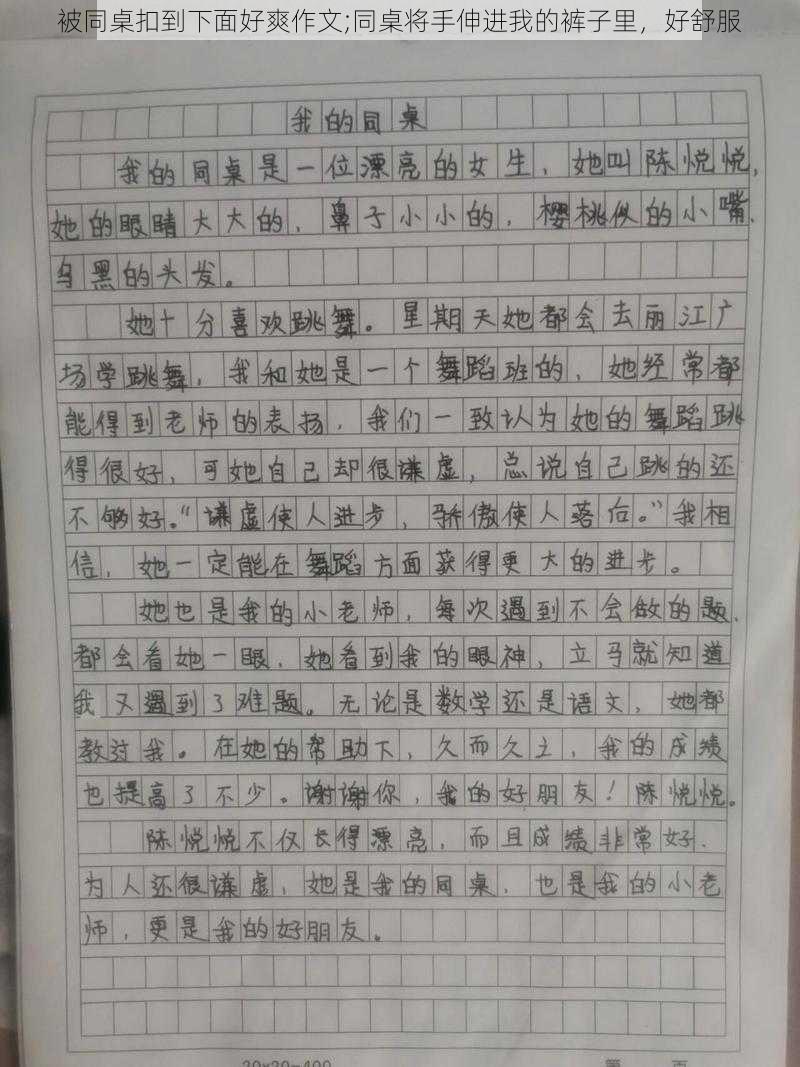 我的同桌
我的同桌是一位漂亮的女生，她叫陈悦悦，
她的眼睛大大的，鼻子小小的，樱桃似的小嘴，
乌黑的头发。
她十分喜欢跳舞。星期天她都会去丽江广
场学跳舞，我和她是一个舞蹈班的，她经常都
能得到老师的表扬，我们一致认为她的舞蹈跳
得很好，可她自己却很谦虚，总说自己跳的还
不够好。“谦虚使人进步，骄傲使人落后。”我相
信，她一定能在舞蹈方面获得更大的进步。
她也是我的小老师，每次遇到不会做的题，
都会看她一眼，她看到我的眼神，立马就知道
我又遇到了难题。无论是数学还是语文，她都
教过我。在她的帮助下，久而久之，我的成绩
也提高了不少。谢谢你，我的好朋友！陈悦悦。
陈悦悦不仅长得漂亮，而且成绩非常好，
为人还很谦虚，她是我的同桌，也是我的小老
师，更是我的好朋友。
20×20=400 第 页